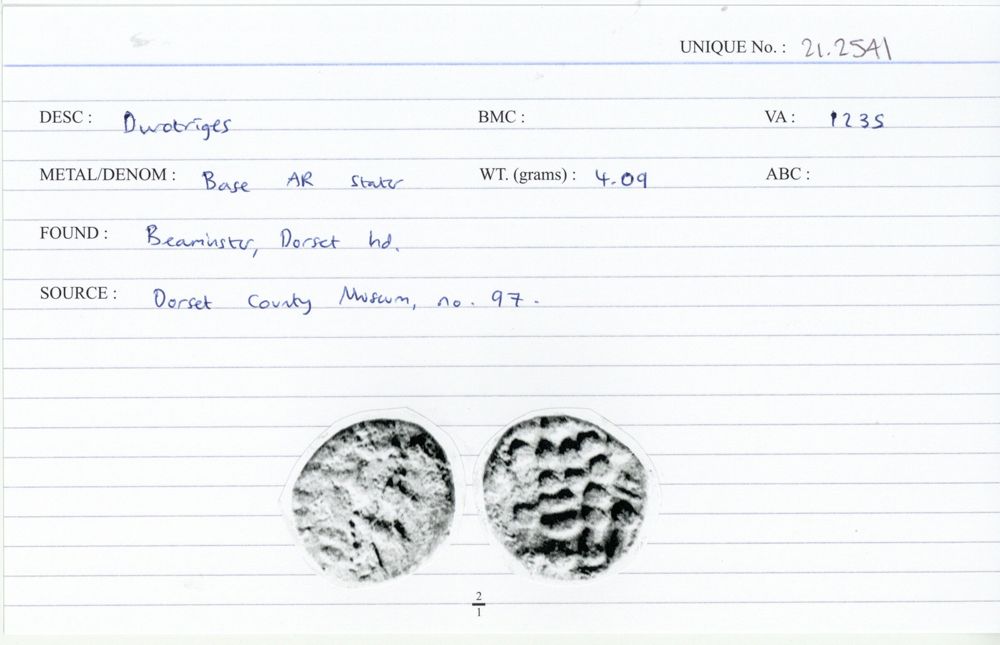 UNIQUE No. : 21.2541
DESC : Durotriges BMC : VA : 1235
METAL/DENOM : Base AR Stater WT. (grams) : 4.09 ABC :
FOUND : Beaminster, Dorset hd.
SOURCE : Dorset County Museum, no. 97.
2
1